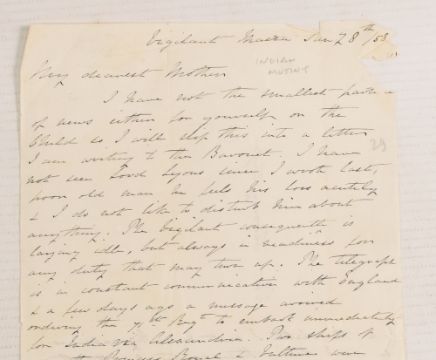 Vigilant Malta Jan 28th /58
My dearest Mother
INDIAN
MUTINY
I have not the smallest
of news either for yourself or the
Child so I will slip this into a letter
29
I am writing to the Baronet. I have
not seen Lord Lyons since I wrote last,
poor old man he feels his loss acutely
& I do not like to disturb him about
anything. The Vigilant consequently is
laying idle, but always in readiness for
any duty that may turn up. The telegraph
is in constant communication with England
& a few days ago a message arrived
ordering the Regt to embark immediately
for India via Alexandria. Two ships of
Princess Royal & Vulture were